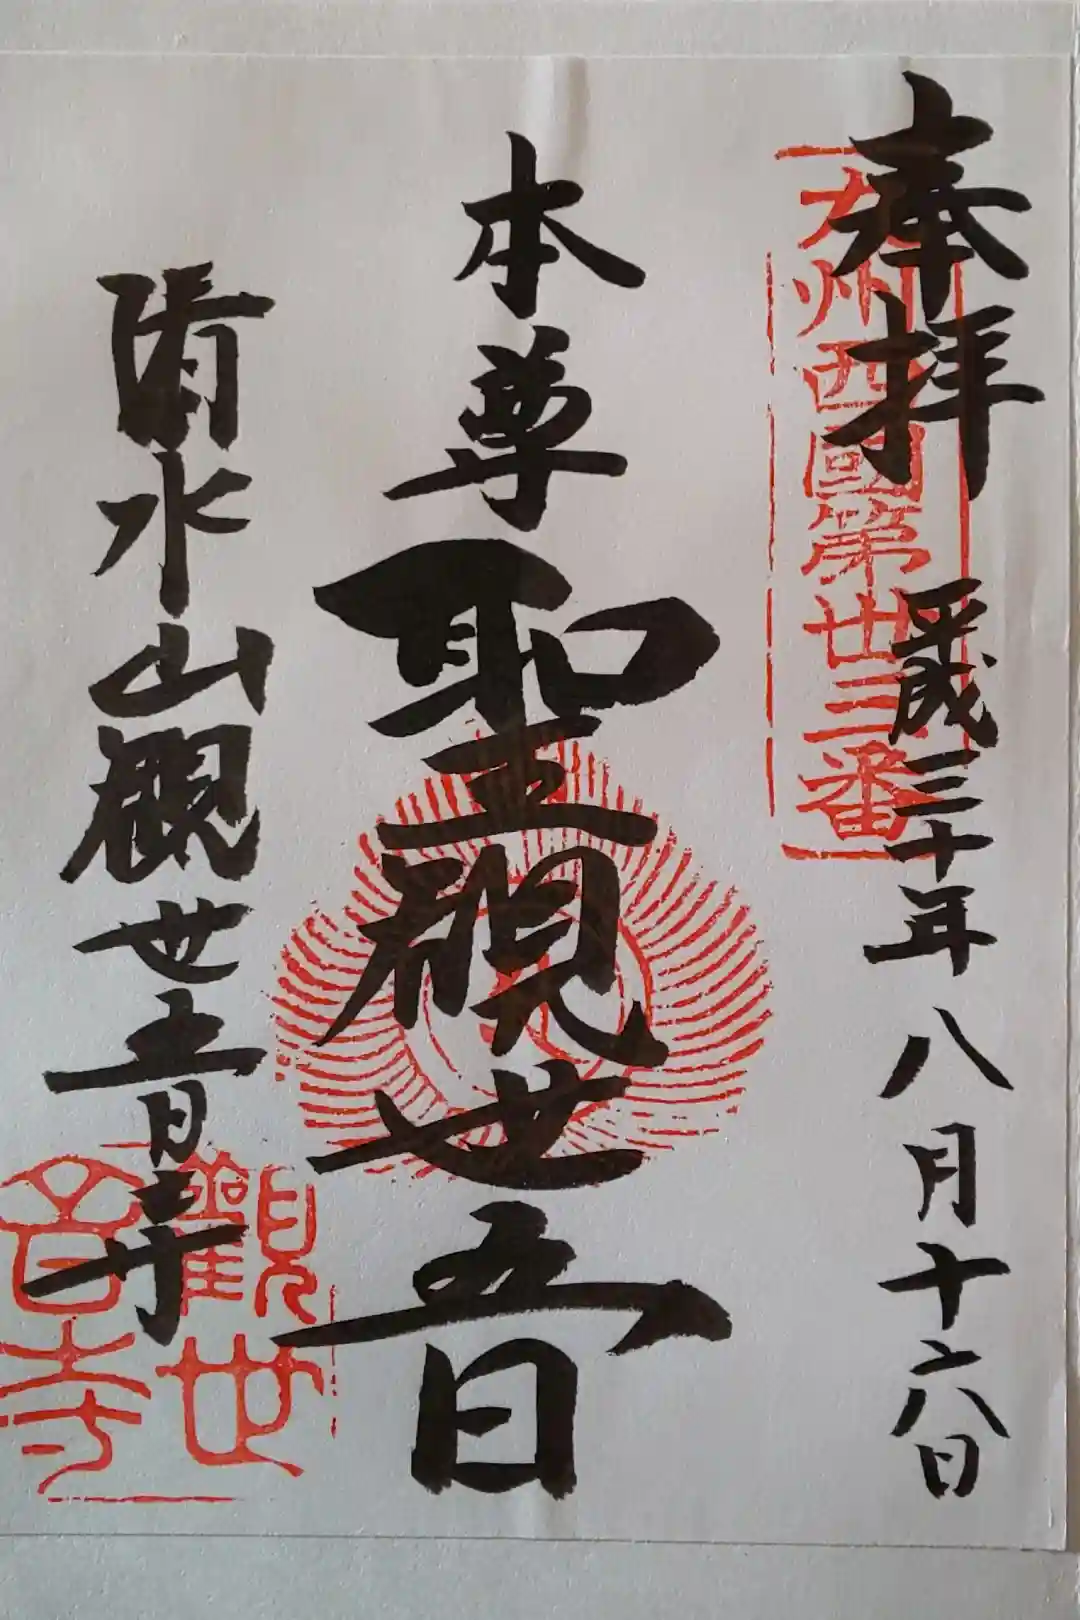 奉拝
平成三十年八月十六日
九州西國第廿三番
本尊
聖観世音
清水山観世音寺
觀世音寺